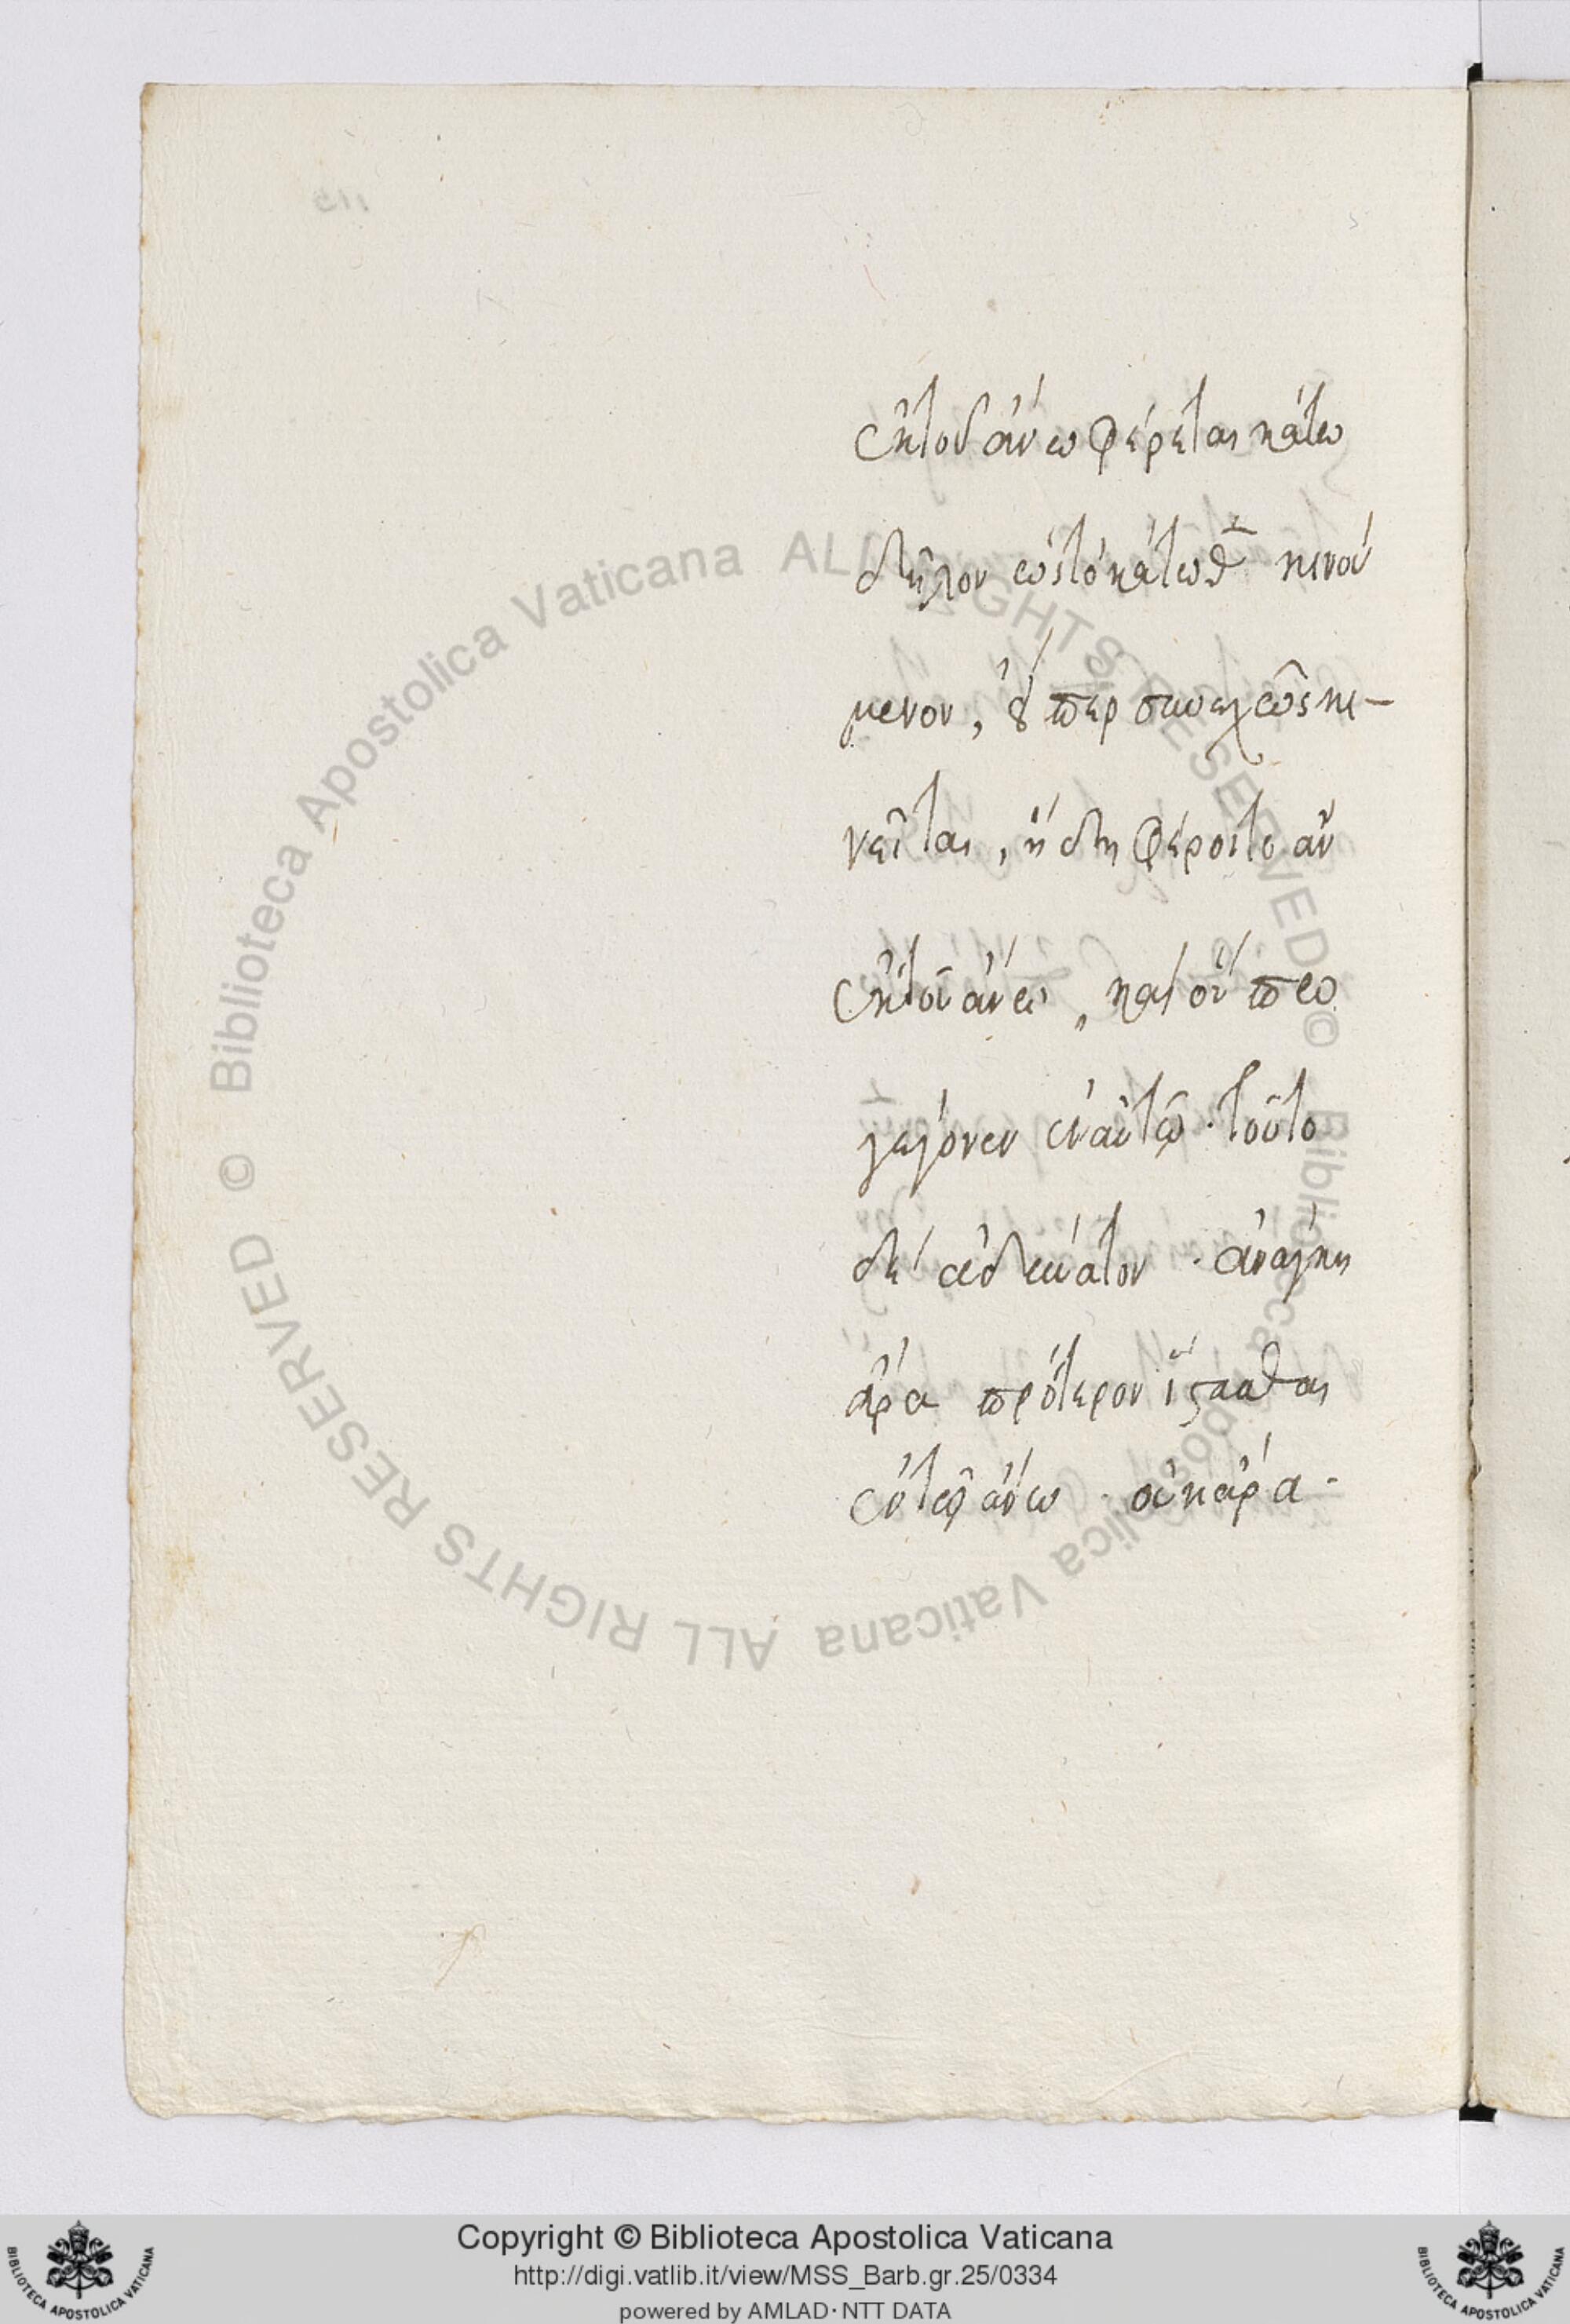 ἐκ τοῦ ἄνω φέρεται κάτω
δῆλον ὡς τὸ κάτωθεν κινού
μενον, εἴπερ συνεχῶς κι-
νεῖται, ἤδη φέροιτο ἂν
ἐκ τοῦ ἄνω, καὶ οὔπω
γεγόνεν ἐν αὐτῷ. τοῦτο
δὲ ἀδύνατον. ἀνάγκη
ἄρα πρότερον ἵστασθαι
ἐν τῷ ἄνω. οὐκ ἄρα.
Biblioteca Apostolica Vaticana ALL RIGHTS RESERVED ©
Biblioteca Apostolica Vaticana ALL RIGHTS RESERVED ©
Copyright © Biblioteca Apostolica Vaticana
http://digi.vatlib.it/view/MSS_Barb.gr.25/0334
powered by AMLAD · NTT DATA
BIBLIOTECA APOSTOLICA VATICANA
BIBLIOTECA APOSTOLICA VATICANA